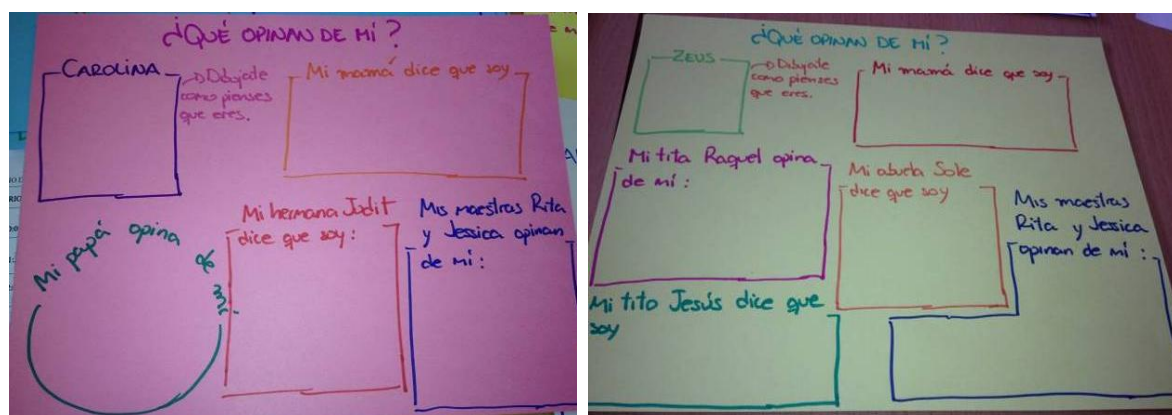 ¿QUÉ OPINAN DE MÍ?
CAROLINA
Dibújate
como pienses
que eres.
Mi mamá dice que soy
Mi papá opina de mí:
Mi hermana Judit
dice que soy:
Mis maestras Rita
y Jessica opinan
de mí:
¿QUÉ OPINAN DE MÍ?
ZEUS
Dibújate
como pienses
que eres.
Mi mamá dice que soy
Mi tita Raquel opina
de mí:
Mi abuela Sole
dice que soy
Mis maestras
Rita y Jessica
opinan de mí:
Mi tito Jesús dice que
soy